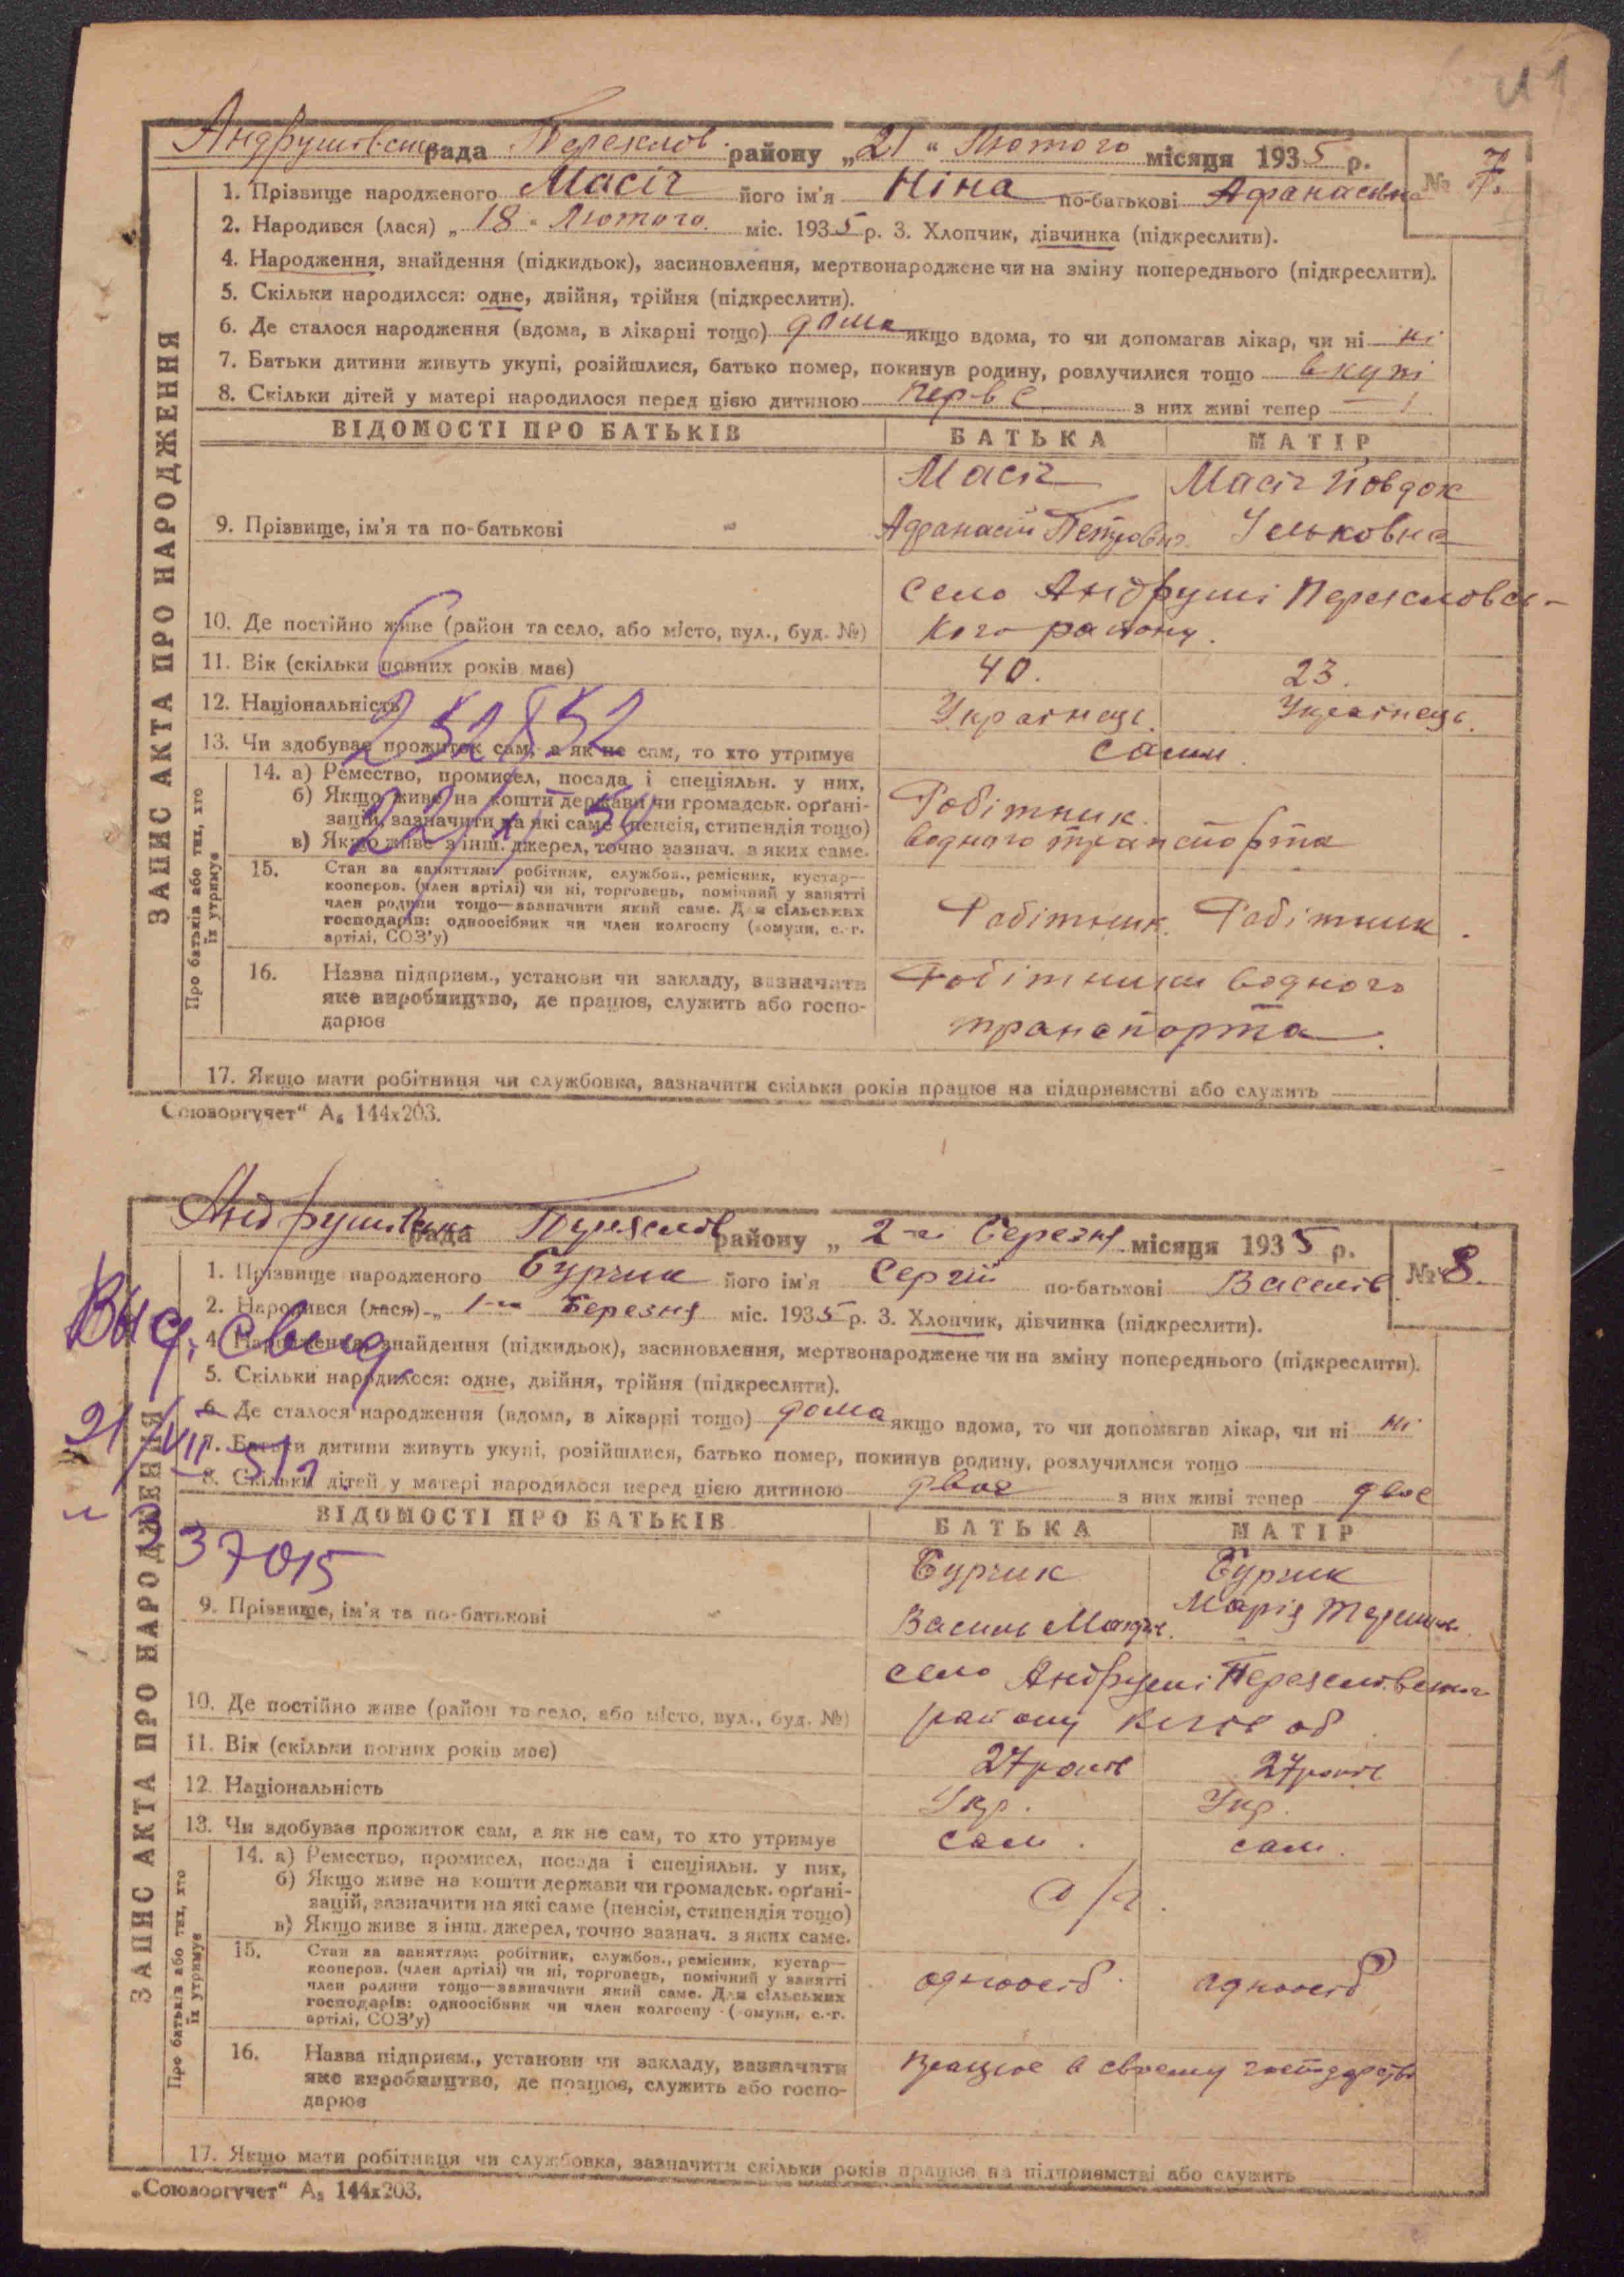 Андрушівська рада Переяслов. району „21“ Лютого місяця 1935 р.
№ 7.
1. Прізвище народженого Масіч його ім'я Ніна по-батькові Афанасівна
2. Народився (лася) „18“ Лютого міс. 1935 р. 3. Хлопчик, дівчинка (підкреслити).
4. Народження, знайдення (підкидьок), засиновлення, мертвонароджене чи на зміну попереднього (підкреслити).
5. Скільки народилося: одне, двійня, трійня (підкреслити).
6. Де сталося народження (вдома, в лікарні тощо) дома якщо вдома, то чи допомагав лікар, чи ні ні
7. Батьки дитини живуть укупі, розійшлися, батько помер, покинув родину, розлучилися тощо вкупі
8. Скільки дітей у матері народилося перед цією дитиною перве з них живі тепер 1
ВІДОМОСТІ ПРО БАТЬКІВ БАТЬКА МАТІР
Масіч Масіч Йовдок
9. Прізвище, ім'я та по-батькові Афанасій Петрович Ільковна
село Андруші Переяславсь-
10. Де постійно живе (район та село, або місто, вул., буд. №) кого району.
11. Вік (скільки повних років має) 40. 23.
12. Національність Українець. Українець.
13. Чи здобуває прожиток сам, а як не сам, то хто утримує сами.
14. а) Ремество, промисел, посада і спеціяльн. у них,
б) Якщо живе на кошти держави чи громадськ. орґані-
зацій, зазначити на які саме (пенсія, стипендія тощо)
в) Якщо живе з інш. джерел, точно зазнач. з яких саме.
Робітник
водного транспорта
15. Стан за заняттям: робітник, службов., ремісник, кустар—
кооперов. (член артілі) чи ні, торговець, помічний у занятті
член родини тощо—зазначити який саме. Для сільських
господарів: одноосібник чи член колгоспу (комуни, с.-г.
артілі, СОЗ'у)
Робітник. Робітник.
16. Назва підприєм., установи чи закладу, зазначити
яке виробництво, де працює, служить або госпо-
дарює
Робітники водного
транспорта.
17. Якщо мати робітниця чи службовка, зазначити скільки років працює на підприємстві або служить
Союзоргучет“ А₅ 144х203.
ЗАПИС АКТА ПРО НАРОДЖЕННЯ
Про батьків або тих, хто
їх утримує
Андрушівська рада Переяслов району „2-го Березня місяця 1935 р.
№ 8.
1. Прізвище народженого Бурчик його ім'я Сергій по-батькові Василів
2. Народився (лася) „1-го Березня міс. 1935 р. 3. Хлопчик, дівчинка (підкреслити).
Выд. Свид
4. Народження, знайдення (підкидьок), засиновлення, мертвонароджене чи на зміну попереднього (підкреслити).
5. Скільки народилося: одне, двійня, трійня (підкреслити).
6. Де сталося народження (вдома, в лікарні тощо) дома якщо вдома, то чи допомагав лікар, чи ні ні
7. Батьки дитини живуть укупі, розійшлися, батько помер, покинув родину, розлучилися тощо
8. Скільки дітей у матері народилося перед цією дитиною двоє з них живі тепер двоє
ВІДОМОСТІ ПРО БАТЬКІВ БАТЬКА МАТІР
37015
Бурчик Бурчик
9. Прізвище, ім'я та по-батькові Василь Марія
село Андруші Переяславського
10. Де постійно живе (район та село, або місто, вул., буд. №) району Київс об
11. Вік (скільки повних років має) 27 років 27 років
12. Національність Укр. Укр.
13. Чи здобуває прожиток сам, а як не сам, то хто утримує сам. сам.
14. а) Ремество, промисел, посада і спеціяльн. у них,
б) Якщо живе на кошти держави чи громадськ. орґані-
зацій, зазначити на які саме (пенсія, стипендія тощо)
в) Якщо живе з інш. джерел, точно зазнач. з яких саме.
15. Стан за заняттям: робітник, службов., ремісник, кустар—
кооперов. (член артілі) чи ні, торговець, помічний у занятті
член родини тощо—зазначити який саме. Для сільських
господарів: одноосібник чи член колгоспу (комуни, с.-г.
артілі, СОЗ'у)
одноосіб. одноосіб
16. Назва підприєм., установи чи закладу, зазначити
яке виробництво, де працює, служить або госпо-
дарює
Працює в своєму господарстві
17. Якщо мати робітниця чи службовка, зазначити скільки років працює на підприємстві або служить
„Союзоргучет“ А₅ 144х203.
ЗАПИС АКТА ПРО НАРОДЖЕННЯ
Про батьків або тих, хто
їх утримує